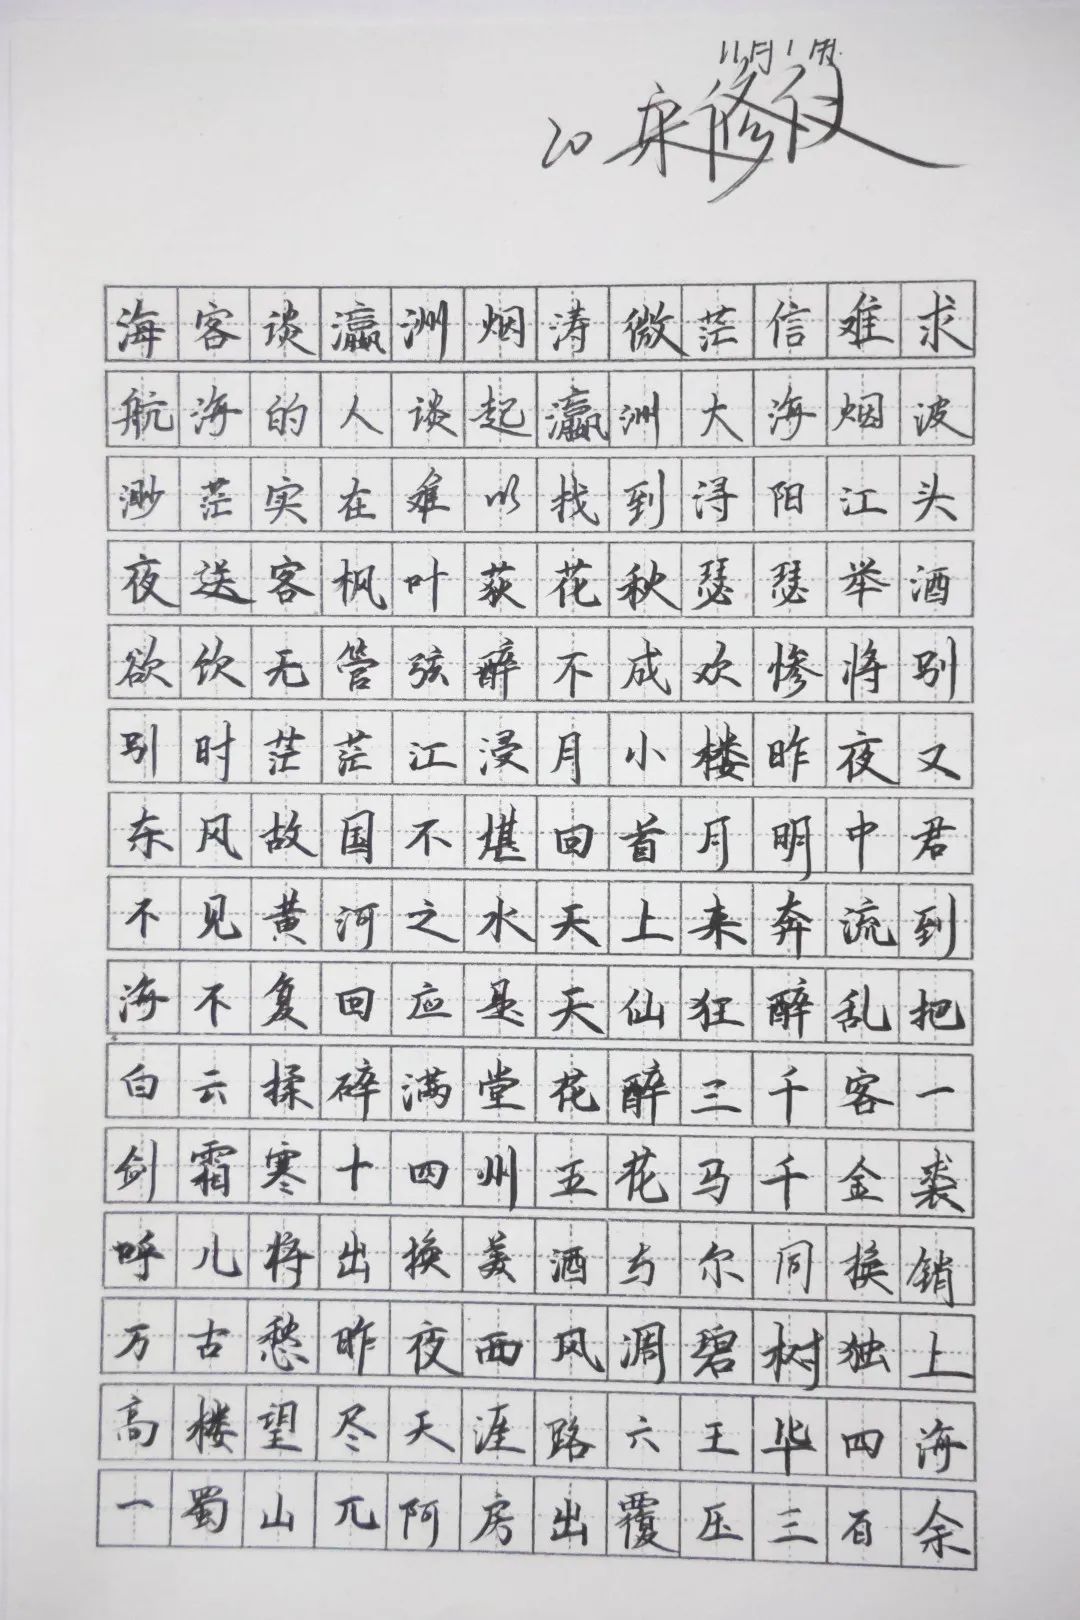 11月1日
20 宋修仪
海客谈瀛洲烟涛微茫信难求
航海的人谈起瀛洲大海烟波
渺茫实在难以找到浔阳江头
夜送客枫叶荻花秋瑟瑟举酒
欲饮无管弦醉不成欢惨将别
别时茫茫江浸月小楼昨夜又
东风故国不堪回首月明中君
不见黄河之水天上来奔流到
海不复回应是天仙狂醉乱把
白云揉碎满堂花醉三千客一
剑霜寒十四州五花马千金裘
呼儿将出换美酒与尔同换销
万古愁昨夜西风凋碧树独上
高楼望尽天涯路六王毕四海
一蜀山兀阿房出覆压三百余